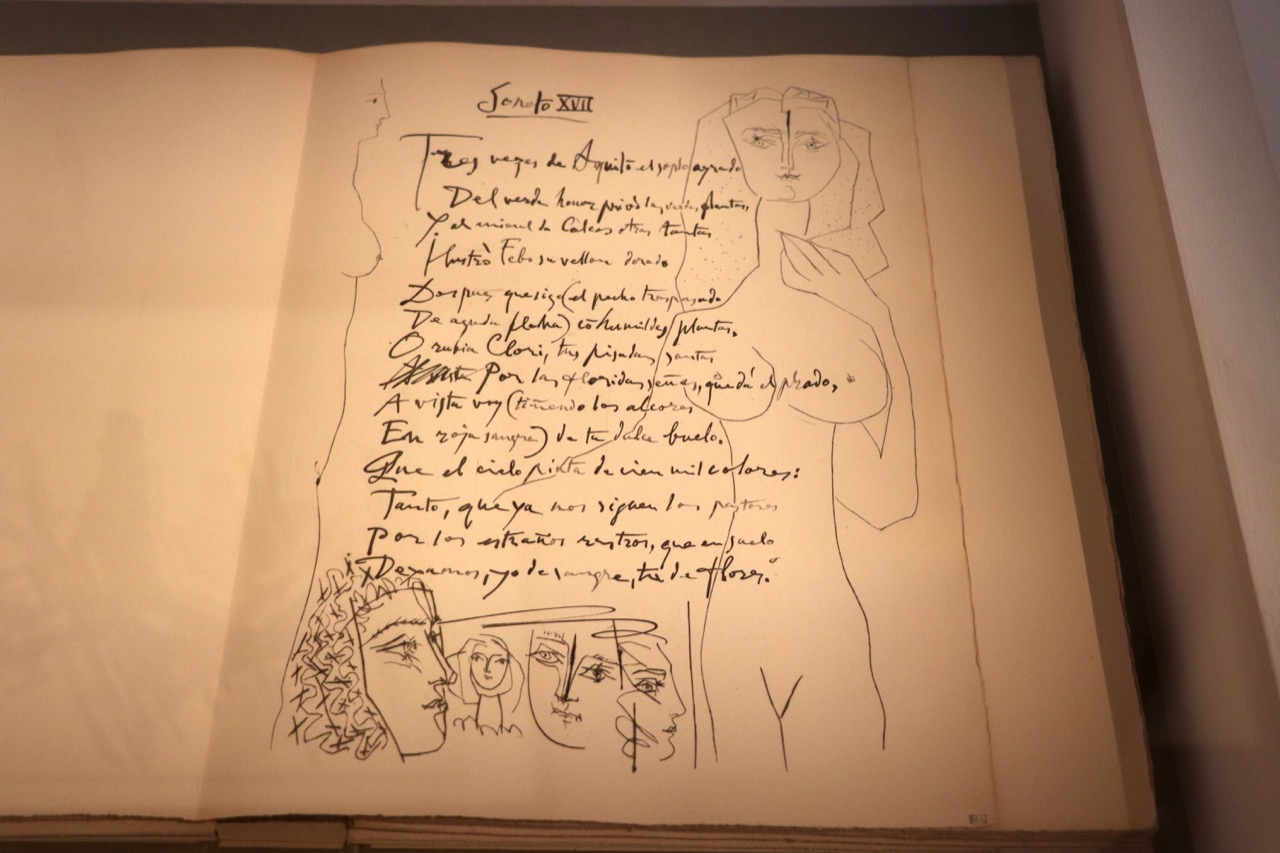 Soneto XVII
Tres vezes de Aquilō el soplo ayrado
Del verde honor privò las verdes plantas,
Y al animal de Colcos otras tantas
Ilustrò Febo su vellon dorado
Despues que sigo (el pecho traspassado
De aguda flecha) cō humildes plantas,
O rubia Clori, tus pisadas santas
Por las floridas señas, que dá el prado,
A vista voy (tiñendo los alcores
En roja sangre) de tu dulce buelo.
Que el cielo pinta de cien mil colores:
Tanto, que ya nos siguen los pastores
Por los estraños rastros, que en suelo
Dexamos, yo de sangre, tu de flores.